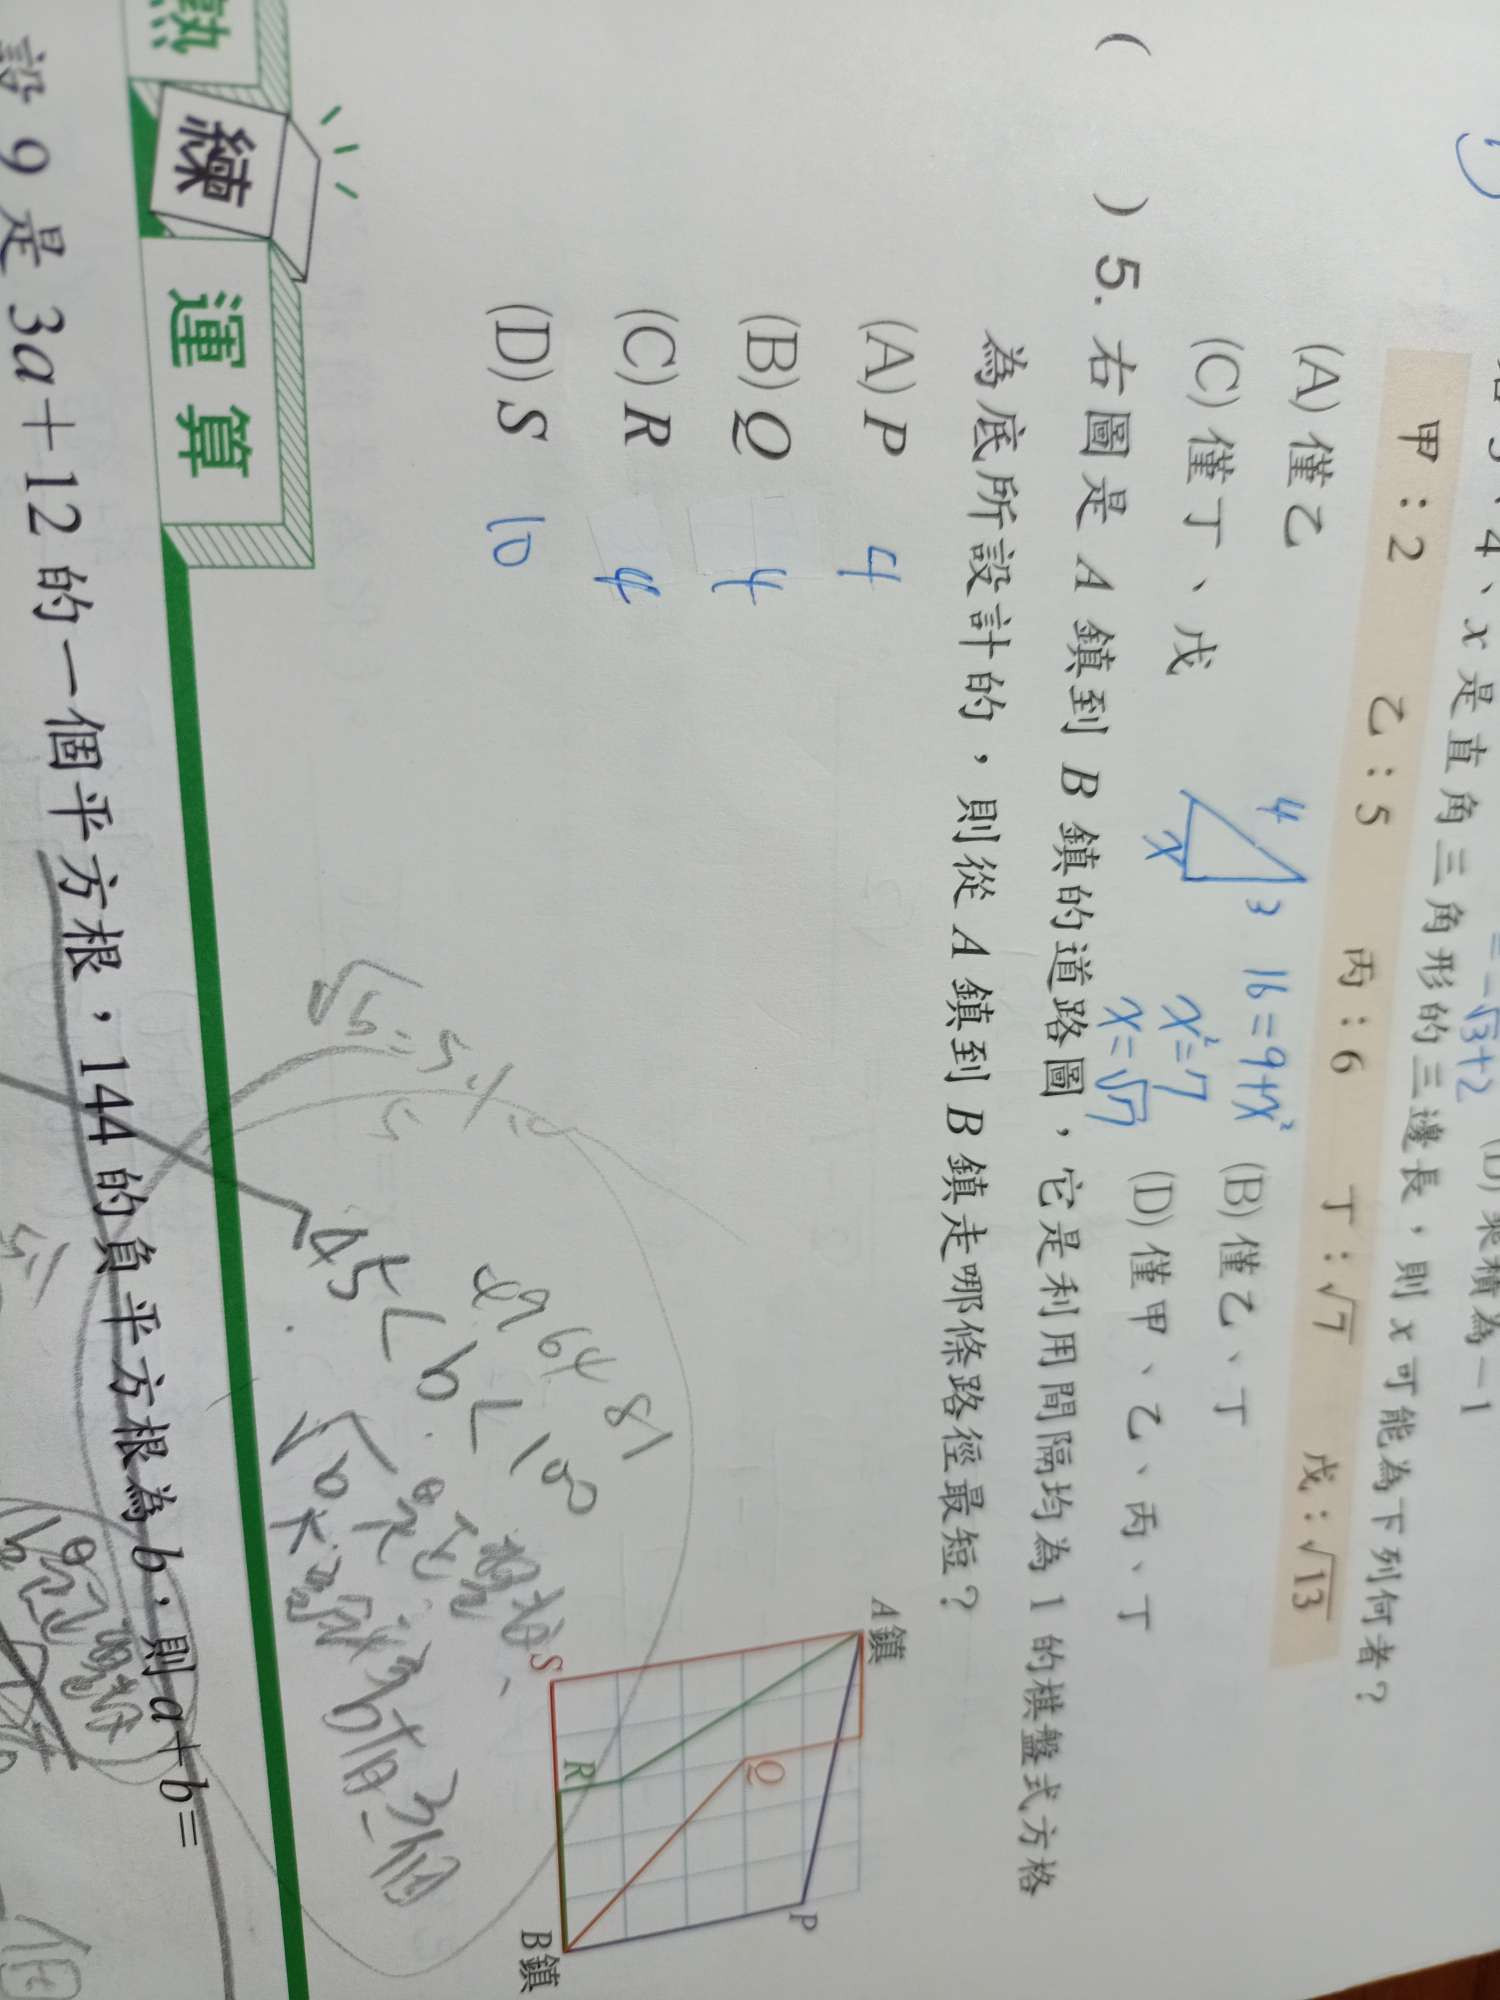 (D)乘積為-1
=-√3+2
4、x是直角三角形的三邊長，則x可能為下列何者？
甲：2 乙：5 丙：6 丁：√7 戊：√13
(A)僅乙 (B)僅乙、丁
(C)僅丁、戊 (D)僅甲、乙、丙、丁
4 3 x
16=9+x²
x²=7
x=√7
( )5. 右圖是A鎮到B鎮的道路圖，它是利用間隔均為1的棋盤式方格
為底所設計的，則從A鎮到B鎮走哪條路徑最短？
(A) P 4
(B) Q 4
(C) R 4
(D) S 10
A鎮
P
Q
R
S
B鎮
49 64 81
45<b<100
熟練運算
設9是3a+12的一個平方根，144的負平方根為b，則a+b=